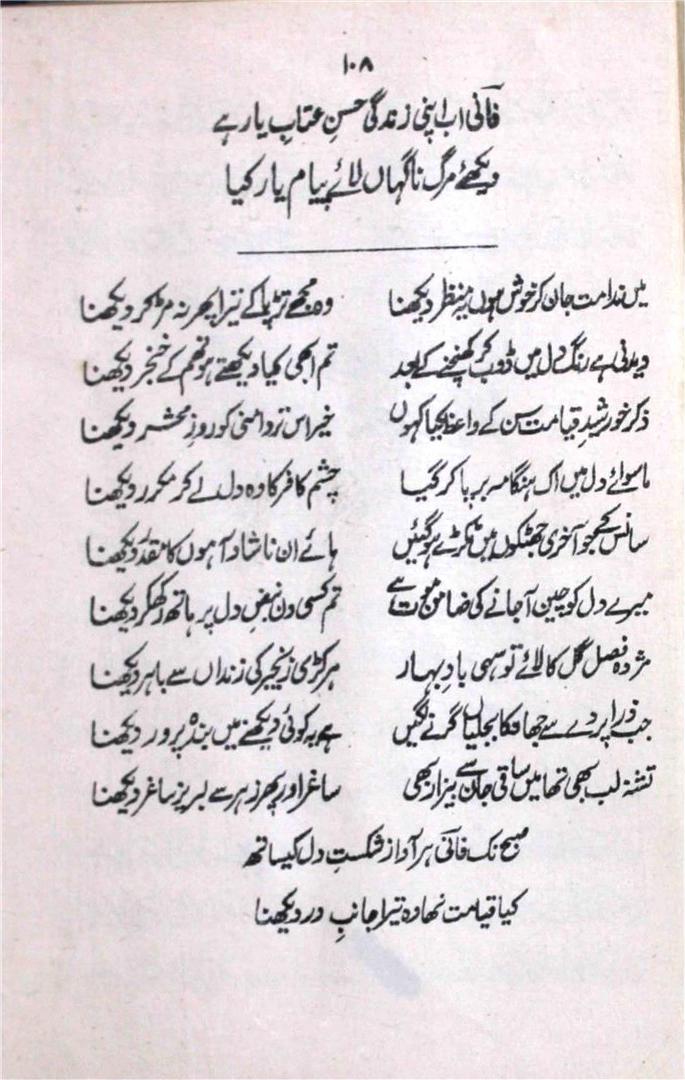 ۱۰۸
فانی اب اپنی زندگی حسنِ عتابِ یار ہے
دیکھئے مرگِ ناگہاں لائے پیامِ یار کیا
میں ندامت جان کر خوش ہوں یہ منظر دیکھنا وہ مجھے تڑپا کے تیرا پھر نہ مڑ کر دیکھنا
دیدنی ہے رنگ دل میں ڈوب کر کھنچنے کے بعد تم ابھی کیا دیکھتے ہو تھم کے خنجر دیکھنا
ذکر خورشیدِ قیامت سن کے واعظ کیا کہوں خیر اس تر دامنی کو روزِ محشر دیکھنا
ماسوائے دل میں اک ہنگامہ برپا کر گیا چشم کافر کا وہ دل لے کر مکرر دیکھنا
سانس کچھ جو آخری جھٹکوں میں ٹکڑے ہو گئیں ہائے ان ناشاد آہوں کا مقدر دیکھنا
میرے دل کو چین آجانے کی ضامن موت سے تم کسی دن نبضِ دل پر ہاتھ رکھکر دیکھنا
مژدہ فصل گل کا لائے تو سہی بادِ بہار ہر کڑی زنجیر کی زنداں سے باہر دیکھنا
جب ذرا پردے سے جھانکا بجلیاں گرنے لگیں ہے یہ کوئی دیکھنے میں بندہ پرور دیکھنا
تشنہ لب بھی تھا میں ساقی جان سے بیزار بھی ساغر اور پھر زہر سے لبریز ساغر دیکھنا
صبح تک فانی ہر آوازِ شکستِ دل کیساتھ
کیا قیامت تھا وہ تیرا جانبِ در دیکھنا